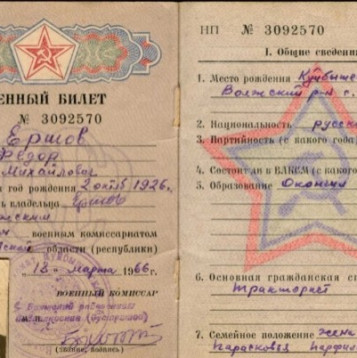 ЕННЫЙ БИЛЕТ
№ 3092570
Ершов
Федор
Михайлович
и год рождения 2 октяб 1926г.
ь владельца Ершов
военным комиссариатом
области (республики)
12 марта 1966 г.
ВОЕННЫЙ КОМИССАР
(звание, подпись)
НП № 3092570
I. Общие сведени
1. Место рождения Куйбыше
Волжский р-н с.
2. Национальность русск
3. Партийность (с какого года)
4. Состоит ли в ВЛКСМ (с как
5. Образование Окончил
6. Основная гражданская сп
тракторист
7. Семейное положение жена
Парасковья